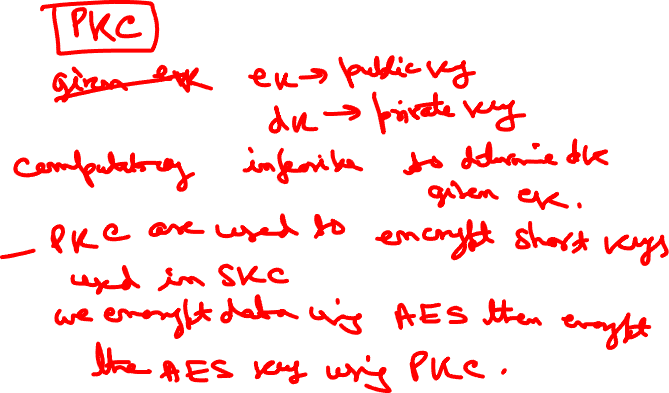 PKC
given ek eK → public key
dK → private key
computationally infeasible to determine dK
given eK.
– PKC are used to encrypt short keys
used in SKC
we encrypt data using AES then encrypt
the AES key using PKC.